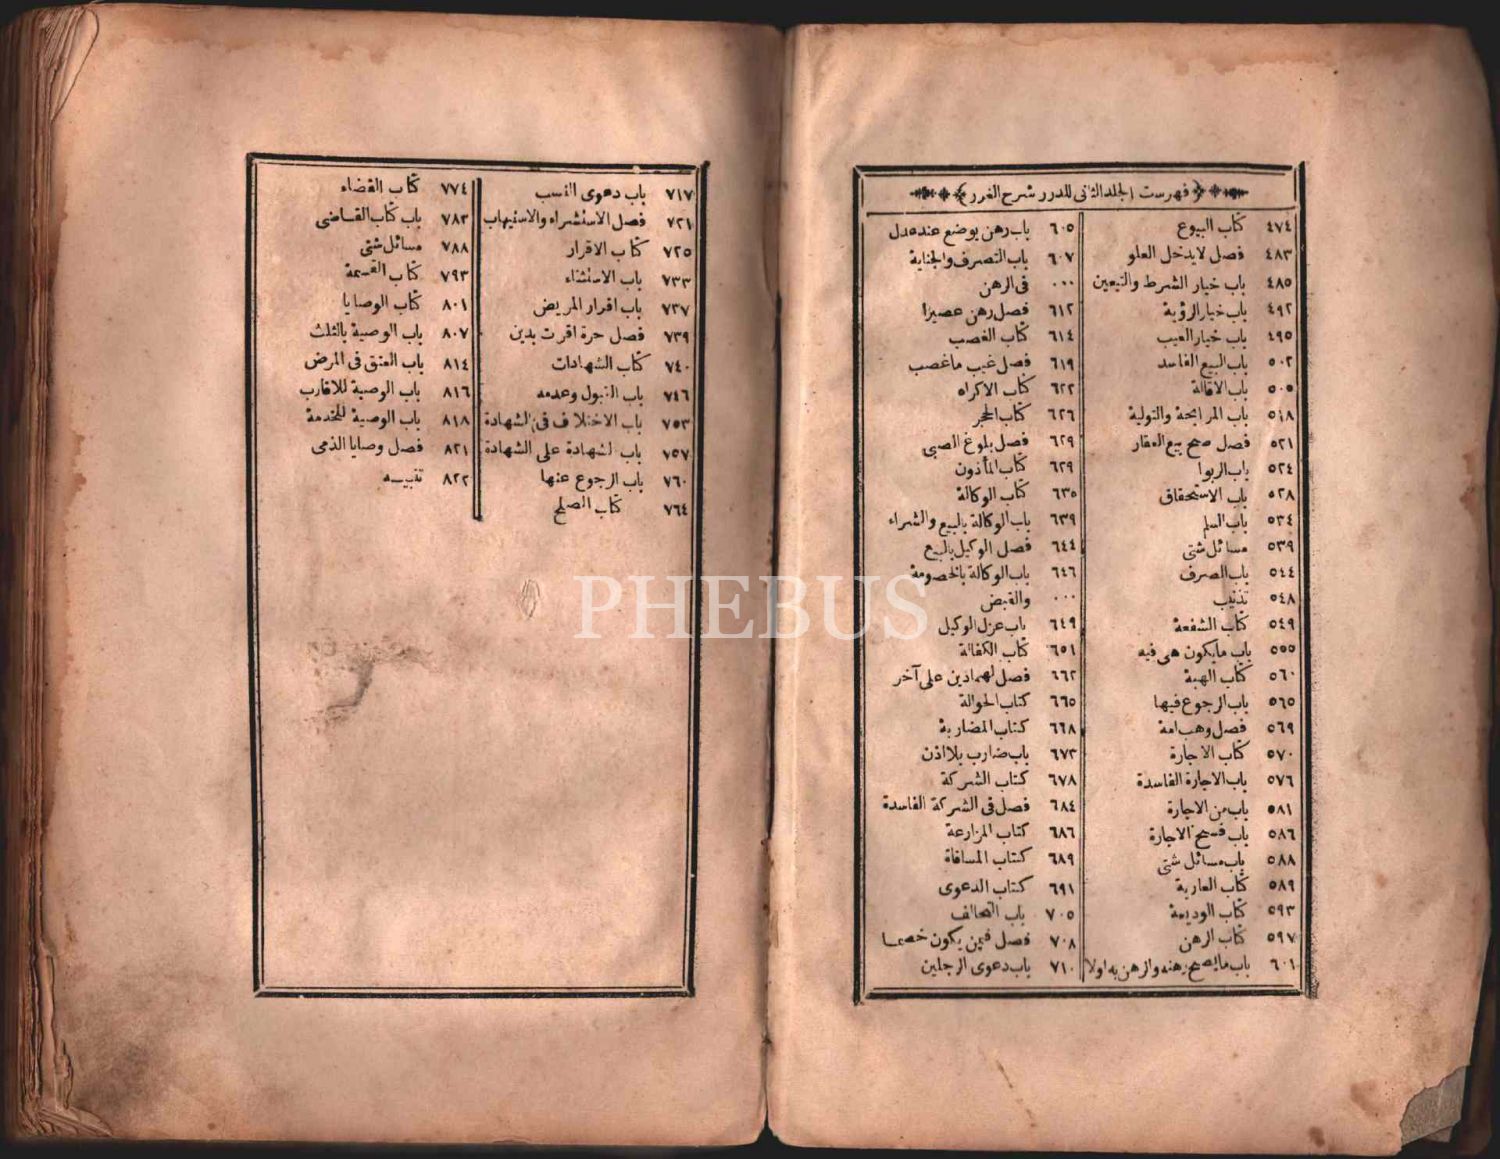 فهرست الجلد الثانى للدرر شرح الغرر
٤٧٤ كتاب البيوع
٤٨٣ فصل لايدخل العلو
٤٨٥ باب خيار الشرط والتعيين
٤٩٢ باب خيار الرؤية
٤٩٥ باب خيار العيب
٥٠٢ باب البيع الفاسد
٥٠٥ باب الاقالة
٥١٨ باب المرابحة والتولية
٥٢١ فصل صح بيع العقار
٥٢٤ باب الربوا
٥٢٨ باب الاستحقاق
٥٣٤ باب السلم
٥٣٩ مسائل شتى
٥٤٤ باب الصرف
٥٤٨ تذنيب
٥٤٩ كتاب الشفعة
٥٥٥ باب مايكون هى فيه
٥٦٠ كتاب الهبة
٥٦٥ باب الرجوع فيها
٥٦٩ فصل وهب امة
٥٧٠ كتاب الاجارة
٥٧٦ باب الاجارة الفاسدة
٥٨١ باب من الاجارة
٥٨٦ باب فسخ الاجارة
٥٨٨ باب مسائل شتى
٥٨٩ كتاب العارية
٥٩٣ كتاب الوديعة
٥٩٧ كتاب الرهن
٦٠١ باب مايصح رهنه والرهن به اولا
٦٠٥ باب رهن يوضع عند عدل
٦٠٧ باب التصرف والجناية
٠٠٠ فى الرهن
٦١٢ فصل رهن عصيرا
٦١٤ كتاب الغصب
٦١٩ فصل غيب ماغصب
٦٢٢ كتاب الاكراه
٦٢٦ كتاب الحجر
٦٢٩ فصل بلوغ الصبى
٦٢٩ كتاب المأذون
٦٣٥ كتاب الوكالة
٦٣٩ باب الوكالة بالبيع والشراء
٦٤٤ فصل الوكيل بالبيع
٦٤٦ باب الوكالة بالخصومة
٠٠٠ والقبض
٦٤٩ باب عزل الوكيل
٦٥١ كتاب الكفالة
٦٦٢ فصل لهما دين على آخر
٦٦٥ كتاب الحوالة
٦٦٨ كتاب المضاربة
٦٧٣ باب ضارب بلا اذن
٦٧٨ كتاب الشركة
٦٨٤ فصل فى الشركة الفاسدة
٦٨٦ كتاب المزارعة
٦٨٩ كتاب المساقاة
٦٩١ كتاب الدعوى
٧٠٥ باب التحالف
٧٠٨ فصل فيمن يكون خصما
٧١٠ باب دعوى الرجلين
٧١٧ باب دعوى النسب
٧٢١ فصل الاستشراء والاستيهاب
٧٢٥ كتاب الاقرار
٧٣٣ باب الاستثناء
٧٣٧ باب اقرار المريض
٧٣٩ فصل حرة اقرت بدين
٧٤٠ كتاب الشهادات
٧٤٦ باب القبول وعدمه
٧٥٣ باب الاختلاف فى الشهادة
٧٥٧ باب الشهادة على الشهادة
٧٦٠ باب الرجوع عنها
٧٦٤ كتاب الصلح
٧٧٤ كتاب القضاء
٧٨٣ باب كتاب القاضى
٧٨٨ مسائل شتى
٧٩٣ كتاب القسمة
٨٠١ كتاب الوصايا
٨٠٧ باب الوصية بالثلث
٨١٤ باب العتق فى المرض
٨١٦ باب الوصية للاقارب
٨١٨ باب الوصية للخدمة
٨٢١ فصل وصايا الذمى
٨٢٢ تنبيه
PHEBUS